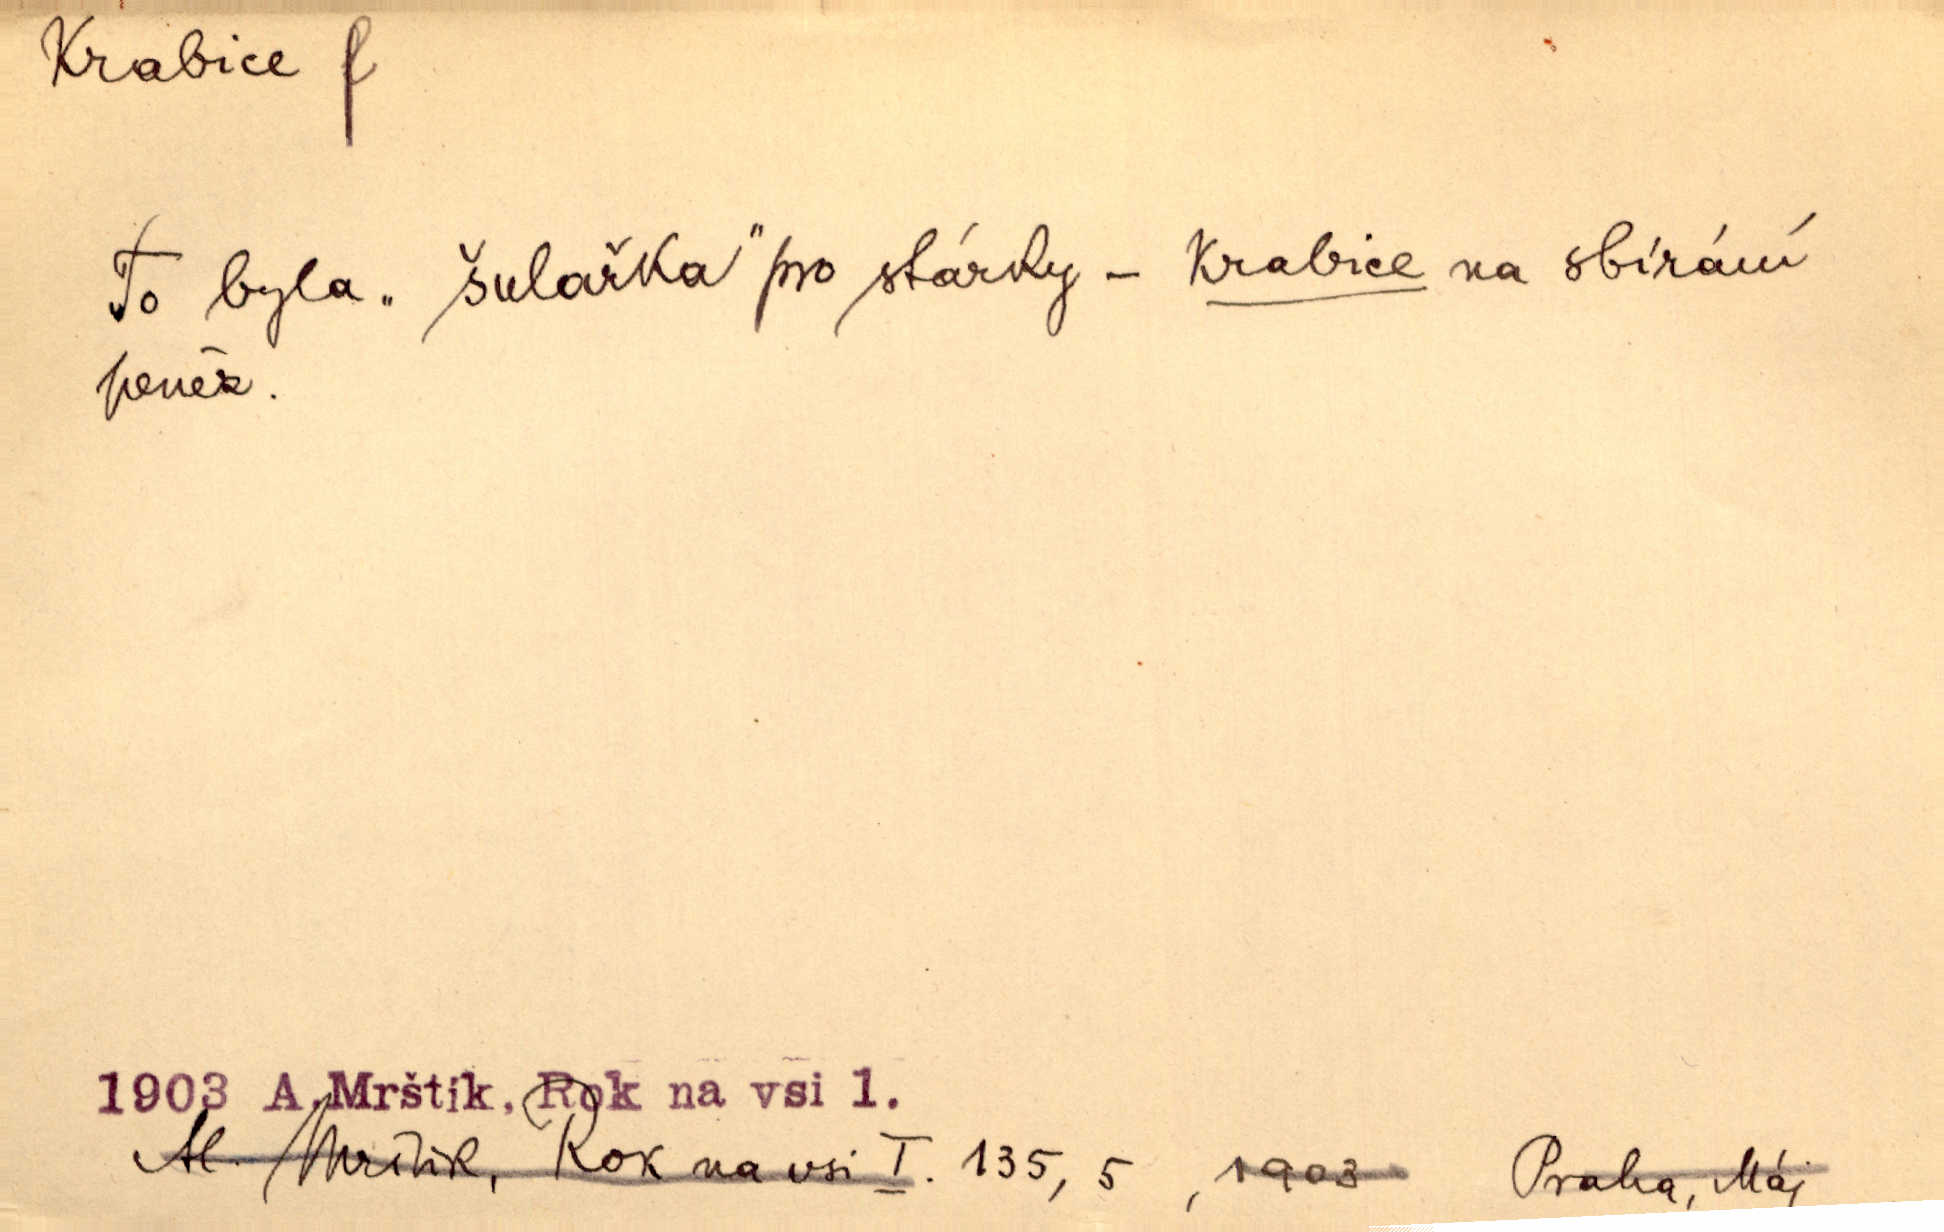 Krabice f
To byla „šulařka" pro stárky – Krabice na sbírání
peněz.
1903 A.Mrštík, Rok na vsi 1.
Al. Mrštík, Rok na vsi I. 135, 5 , 1903 Praha, Máj